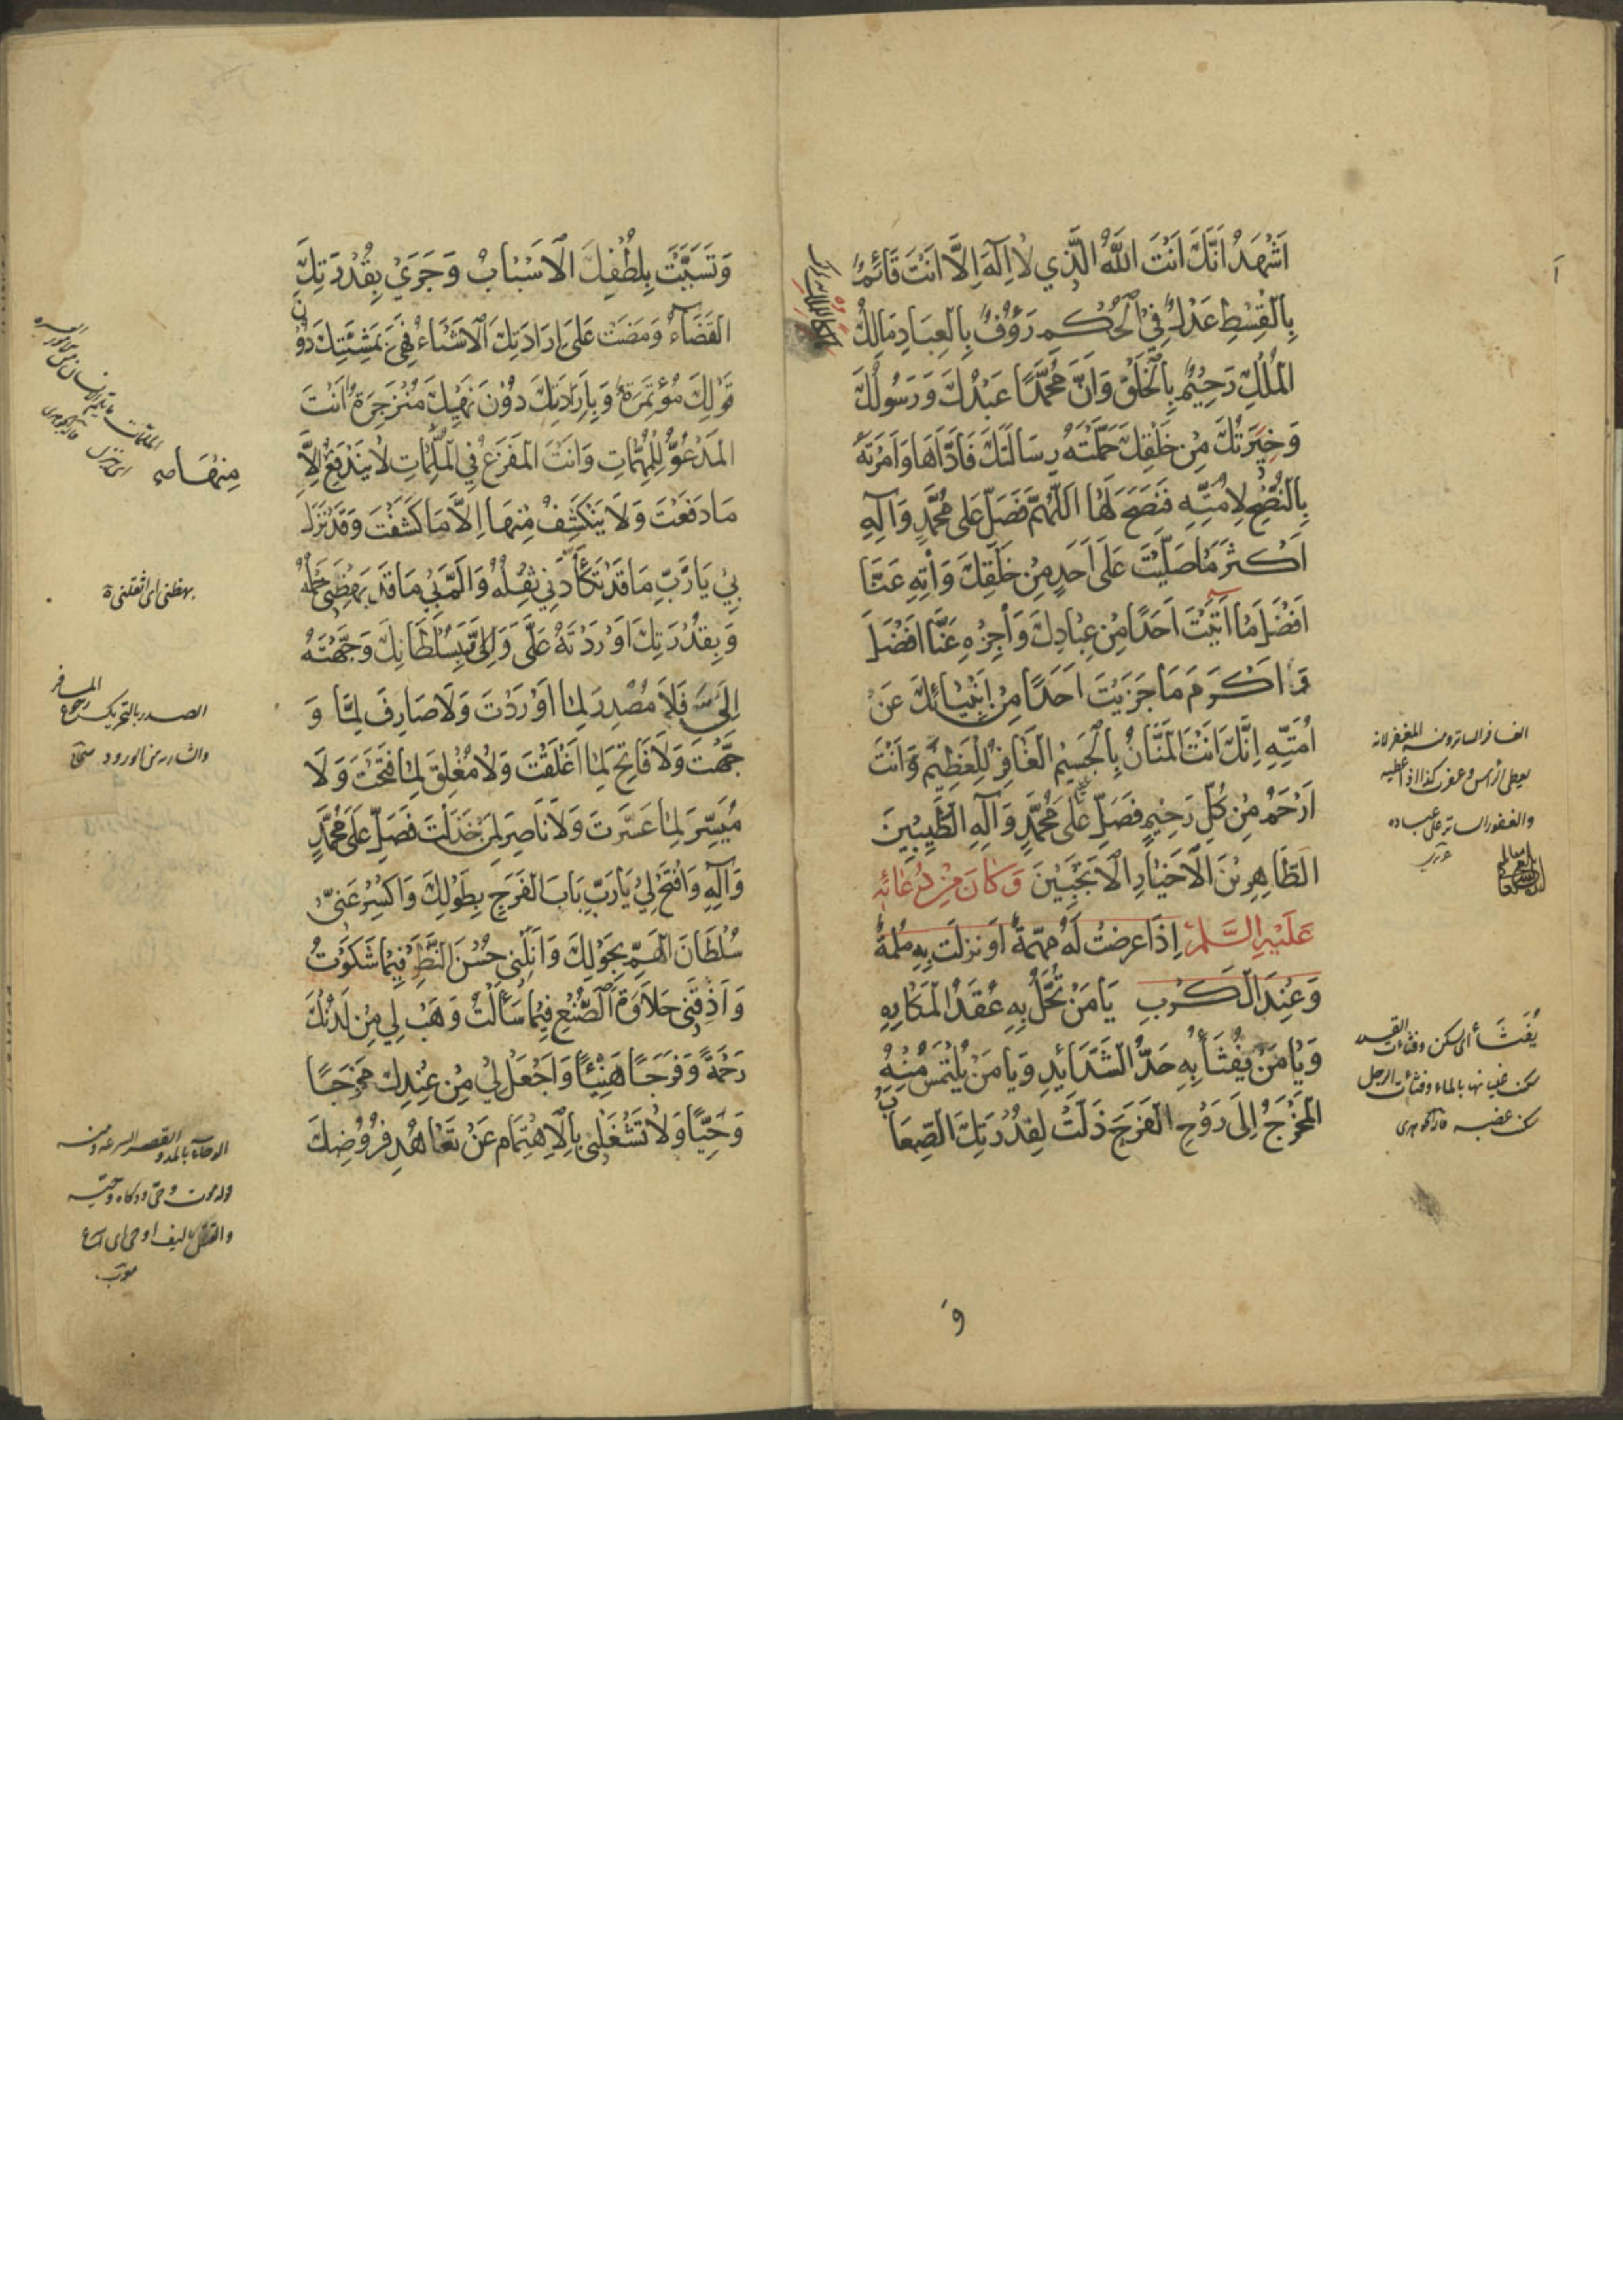 اَشْهَدُ اَنَّكَ اَنْتَ اللّٰهُ الَّذِي لَا اِلٰهَ اِلَّا اَنْتَ قَائِمٌ
بِالْقِسْطِ عَدْلٌ فِي الْحُكْمِ رَؤُفٌ بِالْعِبَادِ مَالِكُ
الْمُلْكِ رَحِيْمٌ بِالْخَلْقِ وَاَنَّ مُحَمَّدًا عَبْدُكَ وَرَسُولُكَ
وَخِيَرَتُكَ مِنْ خَلْقِكَ حَمَّلْتَهُ رِسَالَتَكَ فَاَدَّاهَا وَاَمَرْتَهُ
بِالنُّصْحِ لِاُمَّتِهِ فَنَصَحَ لَهَا اَللّٰهُمَّ فَصَلِّ عَلٰى مُحَمَّدٍ وَآلِهِ
اَكْثَرَ مَا صَلَّيْتَ عَلٰى اَحَدٍ مِنْ خَلْقِكَ وَآتِهِ عَنَّا
اَفْضَلَ مَا آتَيْتَ اَحَدًا مِنْ عِبَادِكَ وَاَجْزِهِ عَنَّا اَفْضَلَ
وَ اَكْرَمَ مَا جَزَيْتَ اَحَدًا مِنْ اَنْبِيَائِكَ عَنْ
اُمَّتِهِ اِنَّكَ اَنْتَ الْمَنَّانُ بِالْجَسِيْمِ الْغَافِرُ لِلْعَظِيْمِ وَاَنْتَ
اَرْحَمُ مِنْ كُلِّ رَحِيْمٍ فَصَلِّ عَلٰى مُحَمَّدٍ وَآلِهِ الطَّيِّبِيْنَ
الطَّاهِرِيْنَ الْاَخْيَارِ الْاَنْجَبِيْنَ وَكَانَ مِنْ دُعَائِهِ
عَلَيْهِ السَّلَمُ اِذَا عَرَضَتْ لَهُ مُهِمَّةٌ اَوْ نَزَلَتْ بِهِ مُلِمَّةٌ
وَعِنْدَ الْكَرْبِ يَا مَنْ تُحَلُّ بِهِ عُقَدُ الْمَكَارِهِ
وَيَا مَنْ يُفْثَأُ بِهِ حَدُّ الشَّدَائِدِ وَيَا مَنْ يُلْتَمَسُ مِنْهُ
الْمَخْرَجُ اِلٰى رَوْحِ الْفَرَجِ ذَلَّتْ لِقُدْرَتِكَ الصِّعَابُ
وَ
يُفْثَأُ اى يسكن وفثأت القدر
سكن غليانها بالماء وفثأت الرجل
سكن غضبه
وَتَسَبَّبَتْ بِلُطْفِكَ الْاَسْبَابُ وَجَرَيْ بِقُدْرَتِكَ
الْقَضَاءُ وَمَضَتْ عَلٰى اِرَادَتِكَ الْاَشْيَاءُ فَهِيَ بِمَشِيَّتِكَ دُوْنَ
قَوْلِكَ مُؤْتَمِرَةٌ وَبِاِرَادَتِكَ دُوْنَ نَهْيِكَ مُنْزَجِرَةٌ اَنْتَ
الْمَدْعُوُّ لِلْمُهِمَّاتِ وَاَنْتَ الْمَفْزَعُ فِي الْمُلِمَّاتِ لَا يَنْدَفِعُ اِلَّا
مَا دَفَعْتَ وَلَا يَنْكَشِفُ مِنْهَا اِلَّا مَا كَشَفْتَ وَقَدْ نَزَلَ
بِيْ يَا رَبِّ مَا قَدْ تَكَأَّدَنِي ثِقْلُهُ وَاَلَمَّ بِيْ مَا قَدْ بَهَظَنِيْ حَمْلُهُ
وَبِقُدْرَتِكَ اَوْرَدْتَهُ عَلَيَّ وَبِسُلْطَانِكَ وَجَّهْتَهُ
اِلَيَّ فَلَا مُصْدِرَ لِمَا اَوْرَدْتَ وَلَا صَارِفَ لِمَا وَ
جَّهْتَ وَلَا فَاتِحَ لِمَا اَغْلَقْتَ وَلَا مُغْلِقَ لِمَا فَتَحْتَ وَلَا
مُيَسِّرَ لِمَا عَسَّرْتَ وَلَا نَاصِرَ لِمَنْ خَذَلْتَ فَصَلِّ عَلٰى مُحَمَّدٍ
وَآلِهِ وَافْتَحْ لِيْ يَا رَبِّ بَابَ الْفَرَجِ بِطَوْلِكَ وَاكْسِرْ عَنِّيْ
سُلْطَانَ الْهَمِّ بِحَوْلِكَ وَاَنِلْنِيْ حُسْنَ النَّظَرِ فِيْمَا شَكَوْتُ
وَاَذِقْنِيْ حَلَاوَةَ الصُّنْعِ فِيْمَا سَأَلْتُ وَهَبْ لِي مِنْ لَدُنْكَ
رَحْمَةً وَفَرَجًا هَنِيْئًا وَاجْعَلْ لِيْ مِنْ عِنْدِكَ مَخْرَجًا
وَحِيًّا وَلَا تَشْغَلْنِيْ بِالْاِهْتِمَامِ عَنْ تَعَاهُدِ فُرُوْضِكَ
مِنْهَا صه
بهظنى اى اثقلنى
الصدر بالتحريك رجوع المسافر